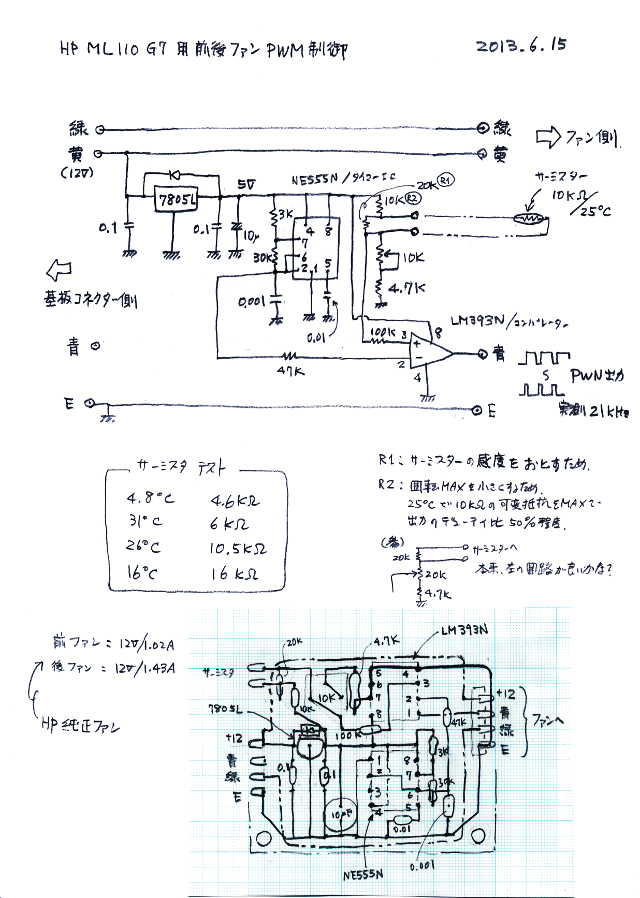 HP ML110 G7 用 前後ファン PWM 制御
2013.6.15
緑
緑
ファン側
黄
黄
(12V)
NE555N/タイマーIC
サーミスター
10KΩ/25°C
7805L
5V
20K R1
10K R2
0.1
0.1
10μ
3K
4 8
7
30K
6
2 1 5
10K
4.7K
基板コネクター側
0.001
0.01
LM393N/コンパレーター
100K
3
8
+
-
2
4
47K
青
青
PWN出力
実測 21KHz
E
E
サーミスタ テスト
4.8°C 4.6KΩ
31°C 6KΩ
26°C 10.5KΩ
16°C 16KΩ
R1: サーミスターの感度をおとすため.
R2: 回転MAXを小さくするため.
25°Cで10KΩの可変抵抗をMAXで
出力のデューティ比50%程度.
20K
サーミスターへ
20K
4.7K
本来、左の回路が良いかな?
前ファン: 12V/1.02A
後ファン: 12V/1.43A
HP純正ファン
サーミスタ
20K
4.7K
LM393N
10K
10K
7805L
100K
5 4
6 3
7 2
8 1
47K
+12
青
緑
E
ファンへ
+12
青
緑
E
0.1
0.1
10μF
1 8
2 7
3 6
4 5
3K
30K
0.01
NE555N
0.001